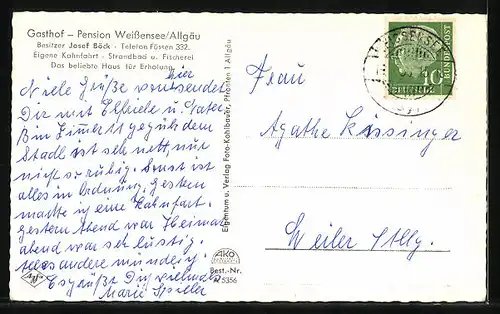 Gasthof – Pension Weißensee/Allgäu
Besitzer Josef Böck - Telefon Füssen 332.
Eigene Kahnfahrt - Strandbad u. Fischerei
Das beliebte Haus für Erholung
hier
Viele Grüße sendet
Dir mit Elfriede u. Vater
Bin
Stadl ist sehr nett, nur
nicht so ruhig. Sonst ist
alles in Ordnung, gestern
machte ich eine Kahnfahrt.
gestern Abend war Heimat
abend war sehr lustig.
Alles andere mündlich.
Es grüßt Dich vielmals
Marie
Eigentum u. Verlag Foto-Kohlbauer, Pfronten 1 Allgäu
AKO
Best.-Nr.
5356
Frau
Agathe Kissinger
Weiler Allg.
DEUTSCHE BUNDESPOST
10